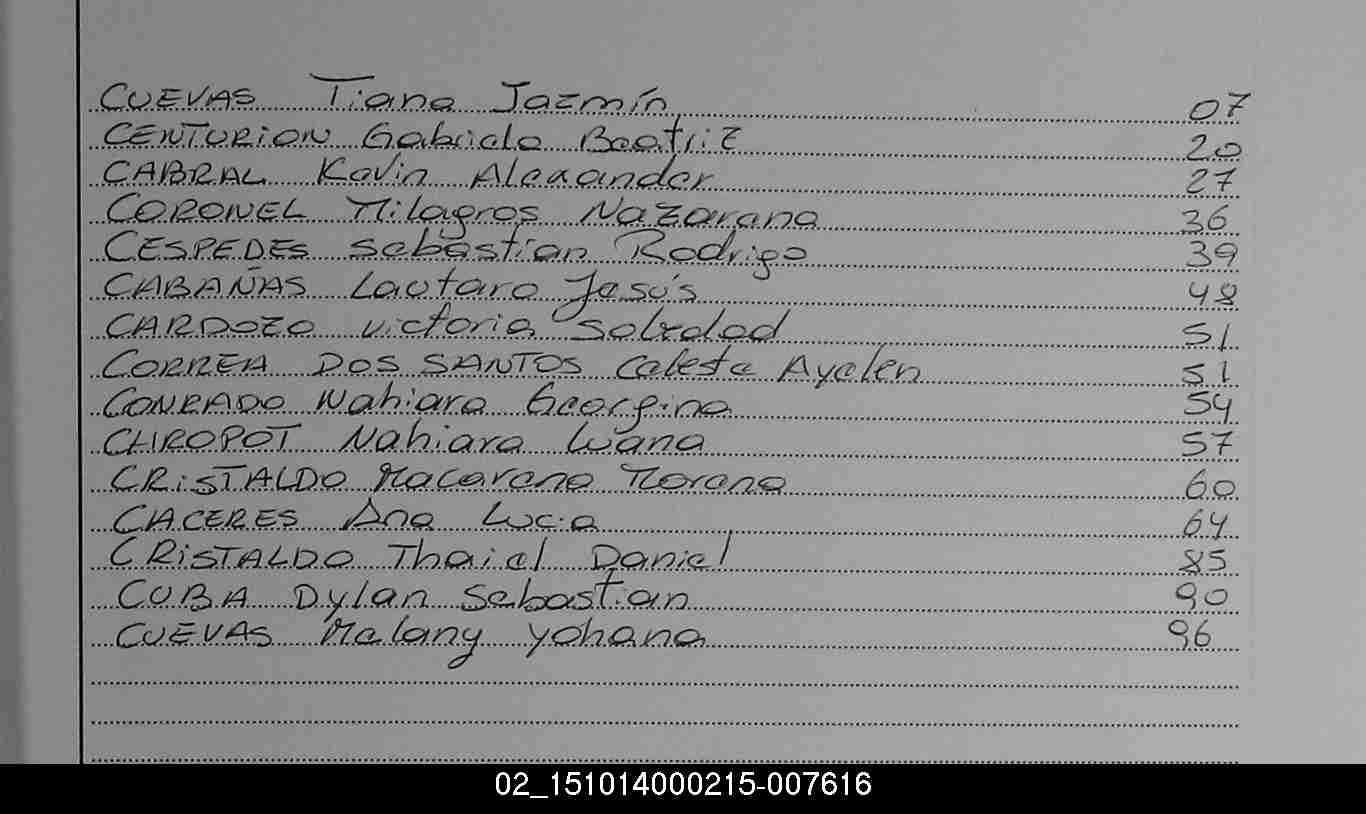 CUEVAS Tiana Jazmín 07
CENTURION Gabriela Beatriz 20
CABRAL Kevin Alexander 27
CORONEL Milagros Nazarena 36
CESPEDES Sebastian Rodrigo 39
CABAÑAS Lautaro Jesús 48
CARDOZO Victoria Soledad 51
CORREA DOS SANTOS Celeste Ayelen 51
CONRADO Nahiara Georgina 54
CHROPOT Nahiara Luana 57
CRISTALDO Macarena Morena 60
CACERES Ana Lucia 64
CRISTALDO Thaiel Daniel 85
CUBA Dylan Sebastian 90
CUEVAS Melany Yohana 96
02_151014000215-007616